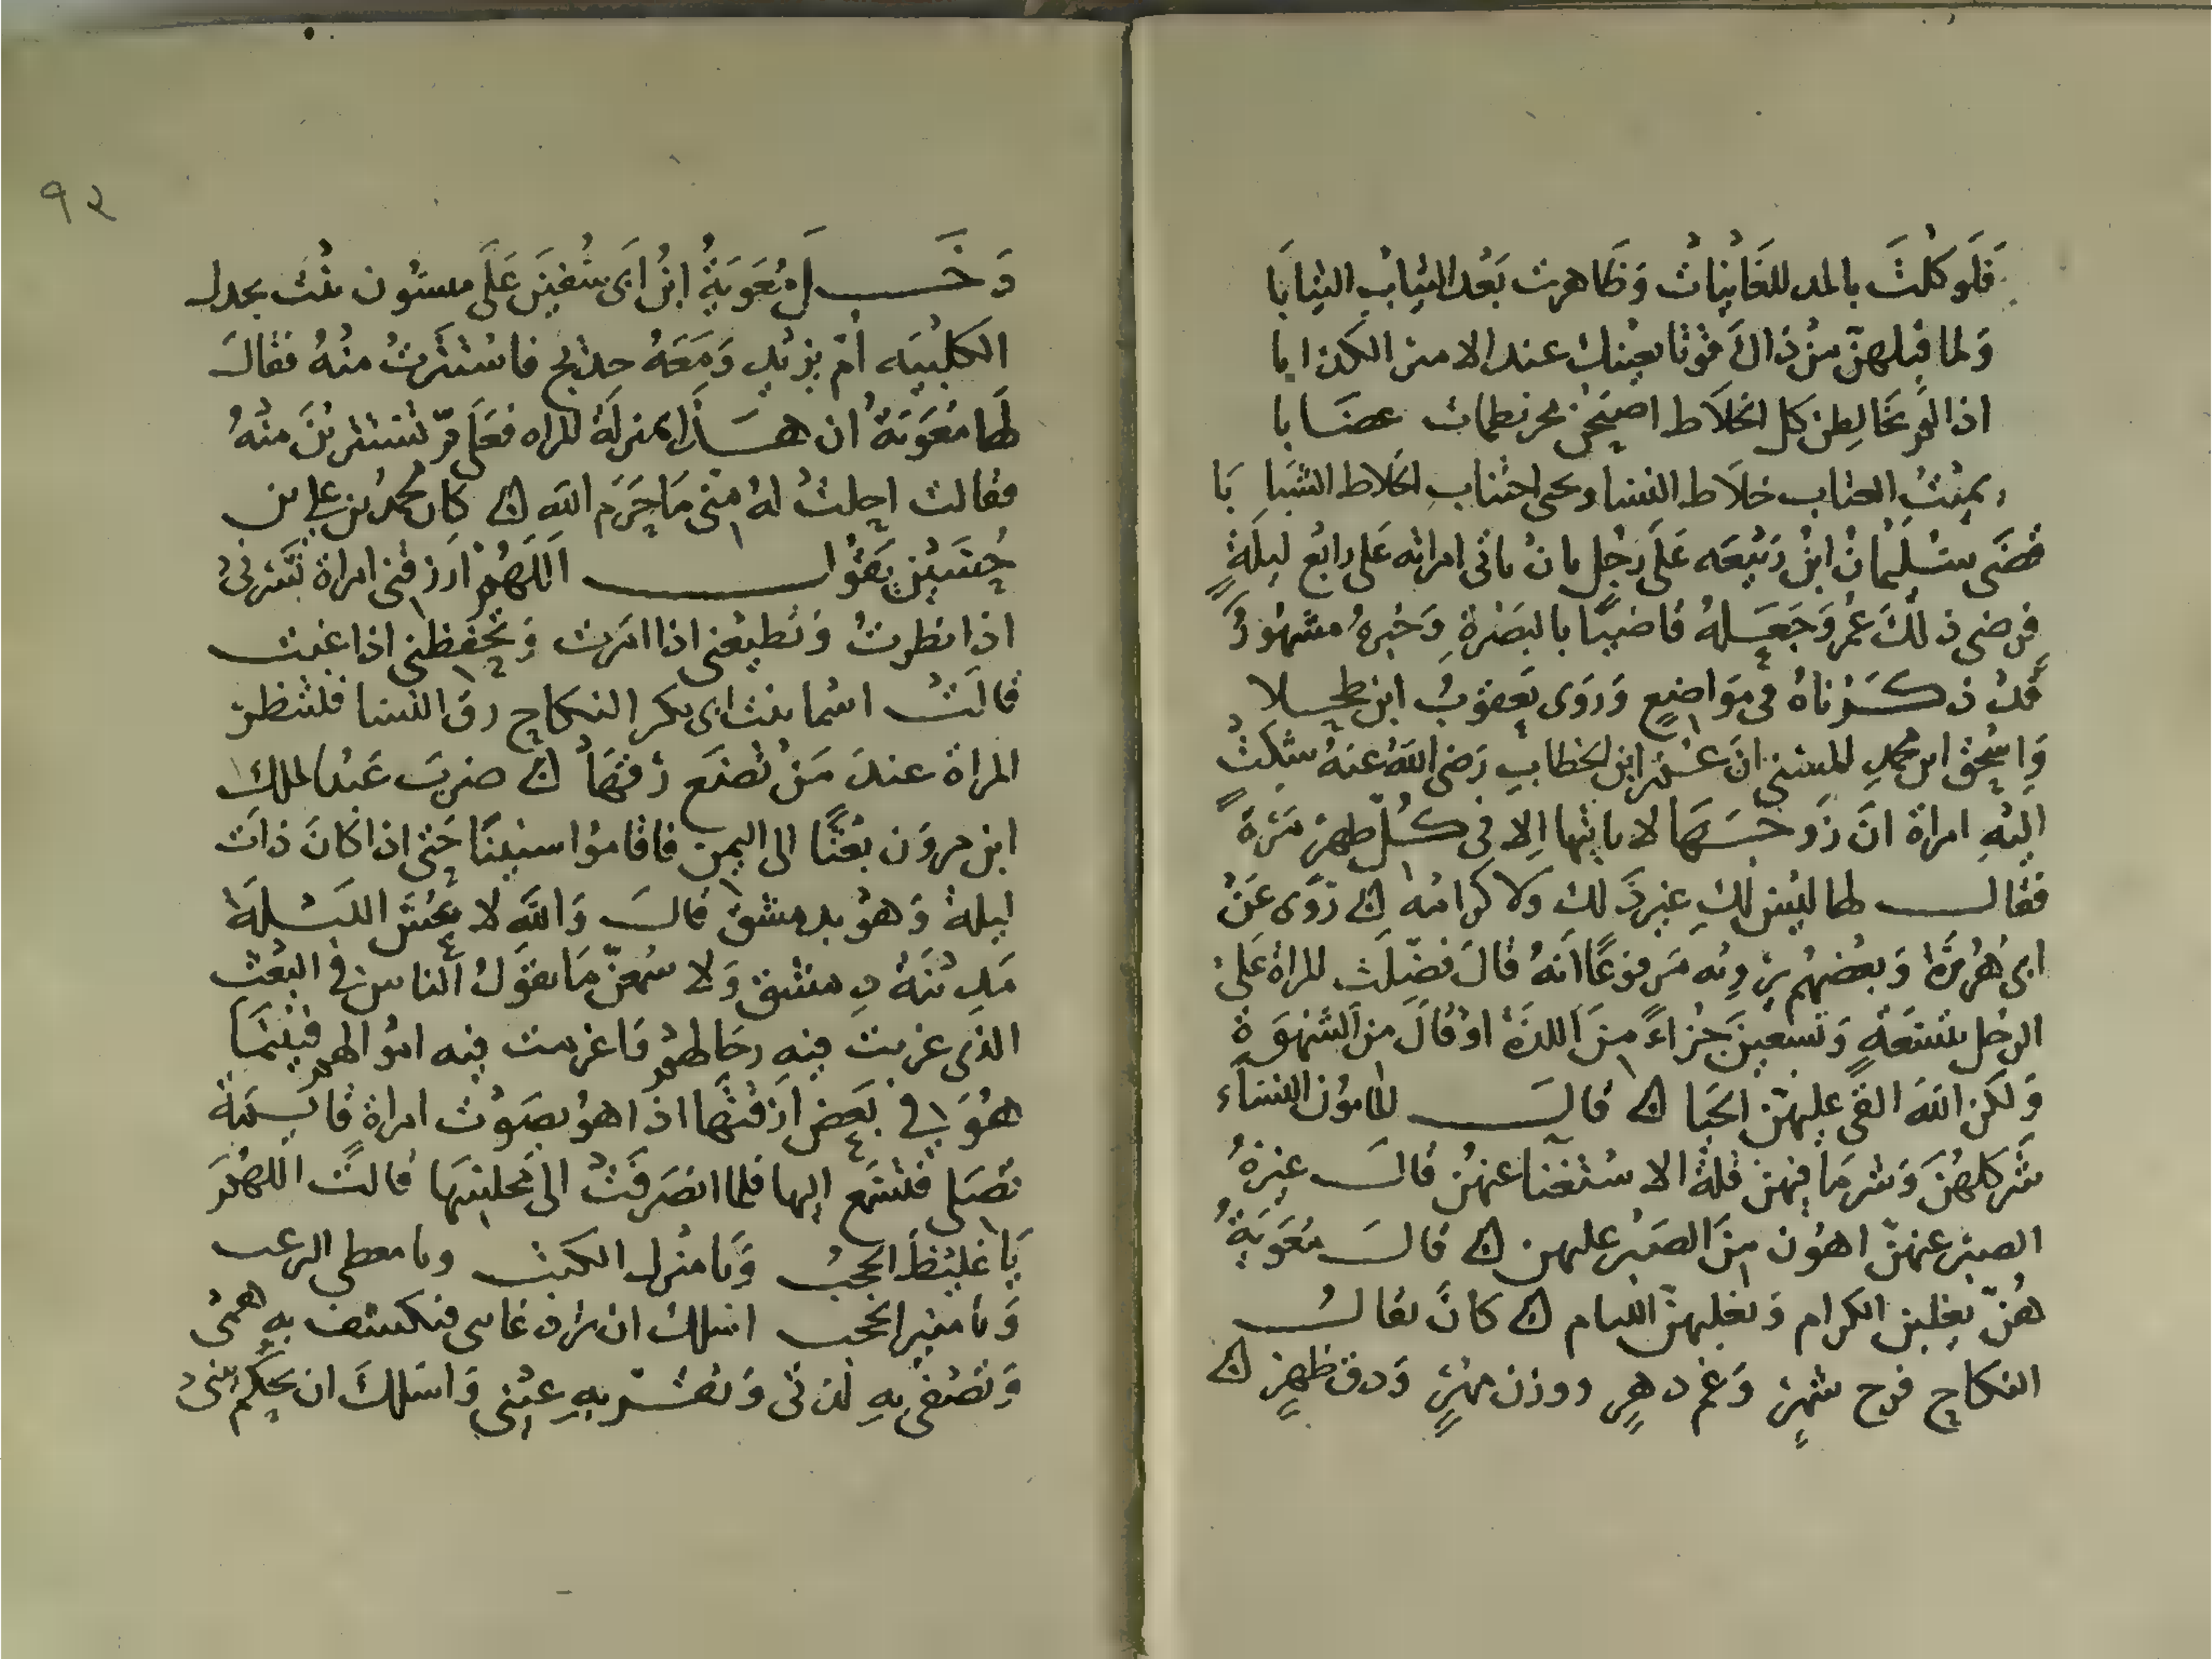 فَلَو كُلْتَ بالمد للغَانِيَاتْ وَظاهرت بَعْد الثِيابِ الثِيَابَا
وَلما قبلهنّ منْ ذاكَ فوتا بعينك عند الامين الكذابا
اذا لَمْ تخَالِطن كل الخلَاط اصبَحْن مخرنطمات عضَابا
يمِيْتُ العتاب خلَاط النسا ويحى اجتناب الخلاط الشبابَا
قضَى سُلَيْمانُ ابنُ رَبيْعَه عَلَى رَجُل بانْ ياتى امراته عَلى رابع ليلَةٍ
فرضى ذلكَ عُمر وَجَعَلهُ قاضيًا بالبَصْرةِ وَخبرهُ مشهُورٌ
قدْ ذكَرْناهُ فى موَاضِعٍ وَرَوَى يَعقوبُ ابن طحلا
وَاسْحٰق ابن محمدِ المسيّبى انَ عُمر ابن الخطابِ رَضى اللهُ عنهُ شكتْ
الَيْهِ امراة انَ زَوجَهَا لا ياتيها اِلا فى كُلّ طهرٍ مَرّةً
فقالَ لها ليْسَ لكِ غيرَ ذَلك ولا كرامه ه رَوَى عَنْ
ابى هُرَيرَة وَبعْضهُم يَرْوِيه مَرفوعًا انهُ قالَ فضّلَت المراة عَلى
الرجُل بتسْعَةٍ وَتسْعِينَ جُزاءً منَ اللذَة اوْ قالَ منَ الشهْوَةِ
وَلَكن اللهَ القىَ عليهنّ الحَيا ه قالَ المامُون النسَاء
شَر كلهُنَ وَشر مَا فيهن قلة الاسْتغنا عنهُن قالَ غيرهُ
الصبر عنهنّ اهوَن منَ الصَبْر عليهن ه قالَ مُعَوَيةُ
هُنّ يغلبن الكرام وَيغلبهنّ اللئام ه كانَ يقالُ
النكاح فرح شهرٍ وَغم دهرٍ ووزن مهْرٍ وَدق ظهرٍ ه
٩٢
دَخَلَ مُعَوَيَةُ ابنُ ابَى سُفيَن عَلَى ميسُون بنْت بحدل
الكلبيَه اُمّ يزيْدٍ وَمَعَهُ خديج فاسْتترتْ منْهُ فقالَ
لهَا مُعَوَيَةُ ان هذا بمنزلَة المراه فعَلَى مّ تستترينَ منْهُ
فقالت احلتْ لهُ منّى مَا حَرَم الله ه كانَ محمد بن على ابن
حُسَيْنٍ يقُول اللَهُمْ ارَزقنى امراة تَسُرنىْ
اذا نظرتْ وَتُطيْعنى اذا امَرت وَتحِفَظنى اذا غبْت
قالَتْ اسْما بنت ابى بكر النكاحِ رق النسا فلتنظر
المراة عندَ مَنْ تَضَع رِقهَا ه ضربَ عَبْد الملك
ابن مروَن بَعْثًا الى اليمن فاقامُوا سنينًا حَتى اذا كانَ ذاتَ
ليلة وَهوُ بدمشق قالَ وَالله لا عُسَّنَ اللَيْلَة
مَدِيْنَة دِمشق وَلا سْمعنّ مَا يقُولُ الناس فى البَعْث
الذى غربت فيه رجَالهمْ وَاغرمت فيه امْوالهم فبيْنَما
هُوَ فى بعَض ازقتهَا اذا هُو بصَوْت امراة قائمَة
تُصَلى فتَسمّع اليها فلما انصَرَفَتْ الى مجلِسهَا قالَتِ اللهُمَّ
يَا غليْظ الحجبْ وَيا منْزل الكتبْ ويا معطى الرغب
وَيا مسَيِّر النجب اسلك ان ترد غايبى فتكشف به همىْ
وَتصْفى بِهِ لذتى وَتقُرّ بهِ عيْنى وَاسَلكَ ان تحكُم بيْنىْ